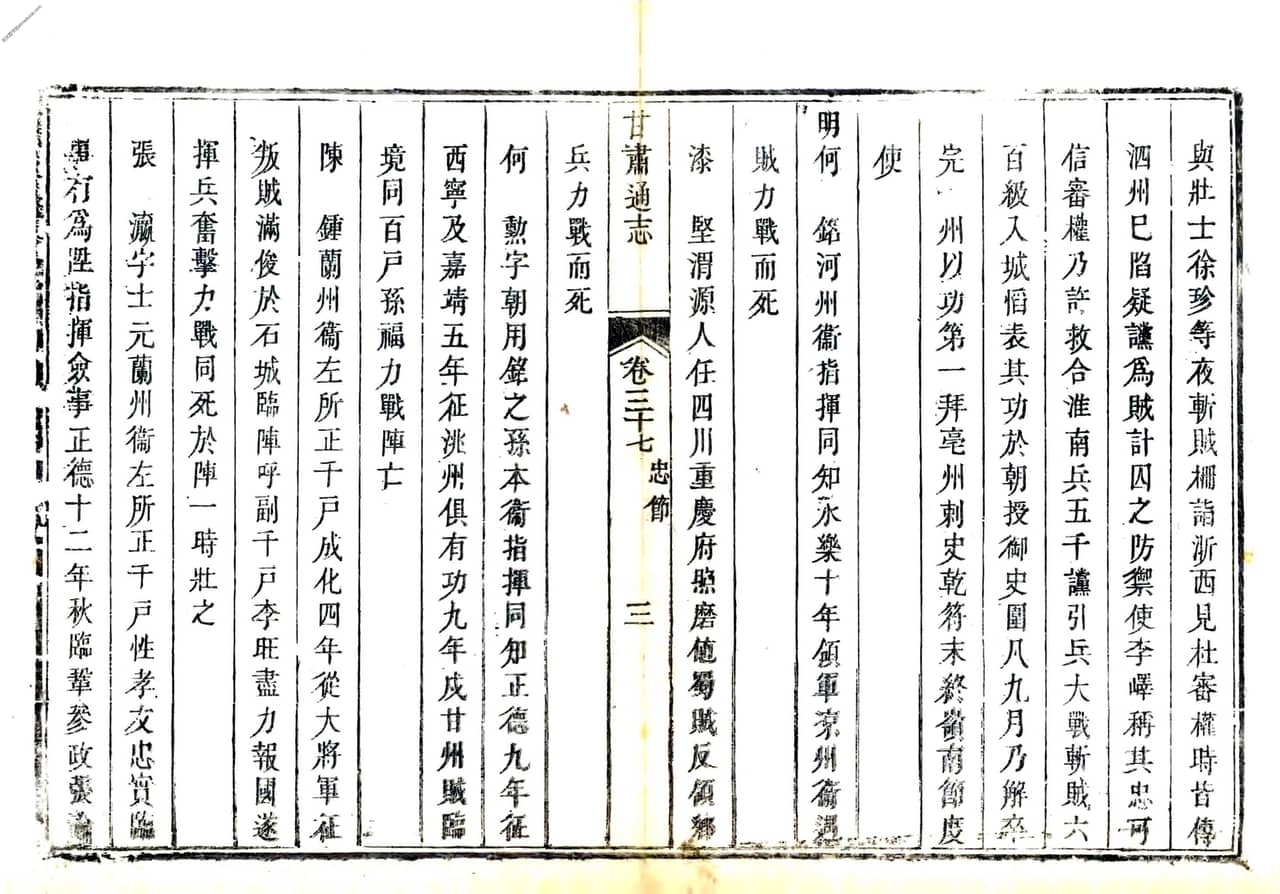 與壯士徐珍等夜斬賊柵詣浙西見杜審權時皆傳
泗州已陷疑讜爲賊計囚之防禦使李嶧稱其忠可
信審權乃許救合淮南兵五千讜引兵大戰斬賊六
百級入城慆表其功於朝授御史圍凡九月乃解卒
完 州以功第一拜亳州刺史乾符末終嶺南節度
使
明何 銘河州衞指揮同知永樂十年領軍凉州衞遇
賊力戰而死
漆 堅渭源人任四川重慶府照磨値蜀賊反領鄉
兵力戰而死
甘肅通志
卷三十七
忠節
三
何 勲字朝用銘之孫本衞指揮同知正德九年征
西寧及嘉靖五年征洮州俱有功九年戍甘州賊臨
境同百戸孫福力戰陣亡
陳 鍾蘭州衞左所正千戸成化四年從大將軍征
叛賊滿俊於石城臨陣呼副千戸李旺盡力報國遂
揮兵奮擊力戰同死於陣一時壯之
張 瀛字士元蘭州衞左所正千戸性孝友忠實臨
事有爲陞指揮僉事正德十二年秋臨鞏參政張